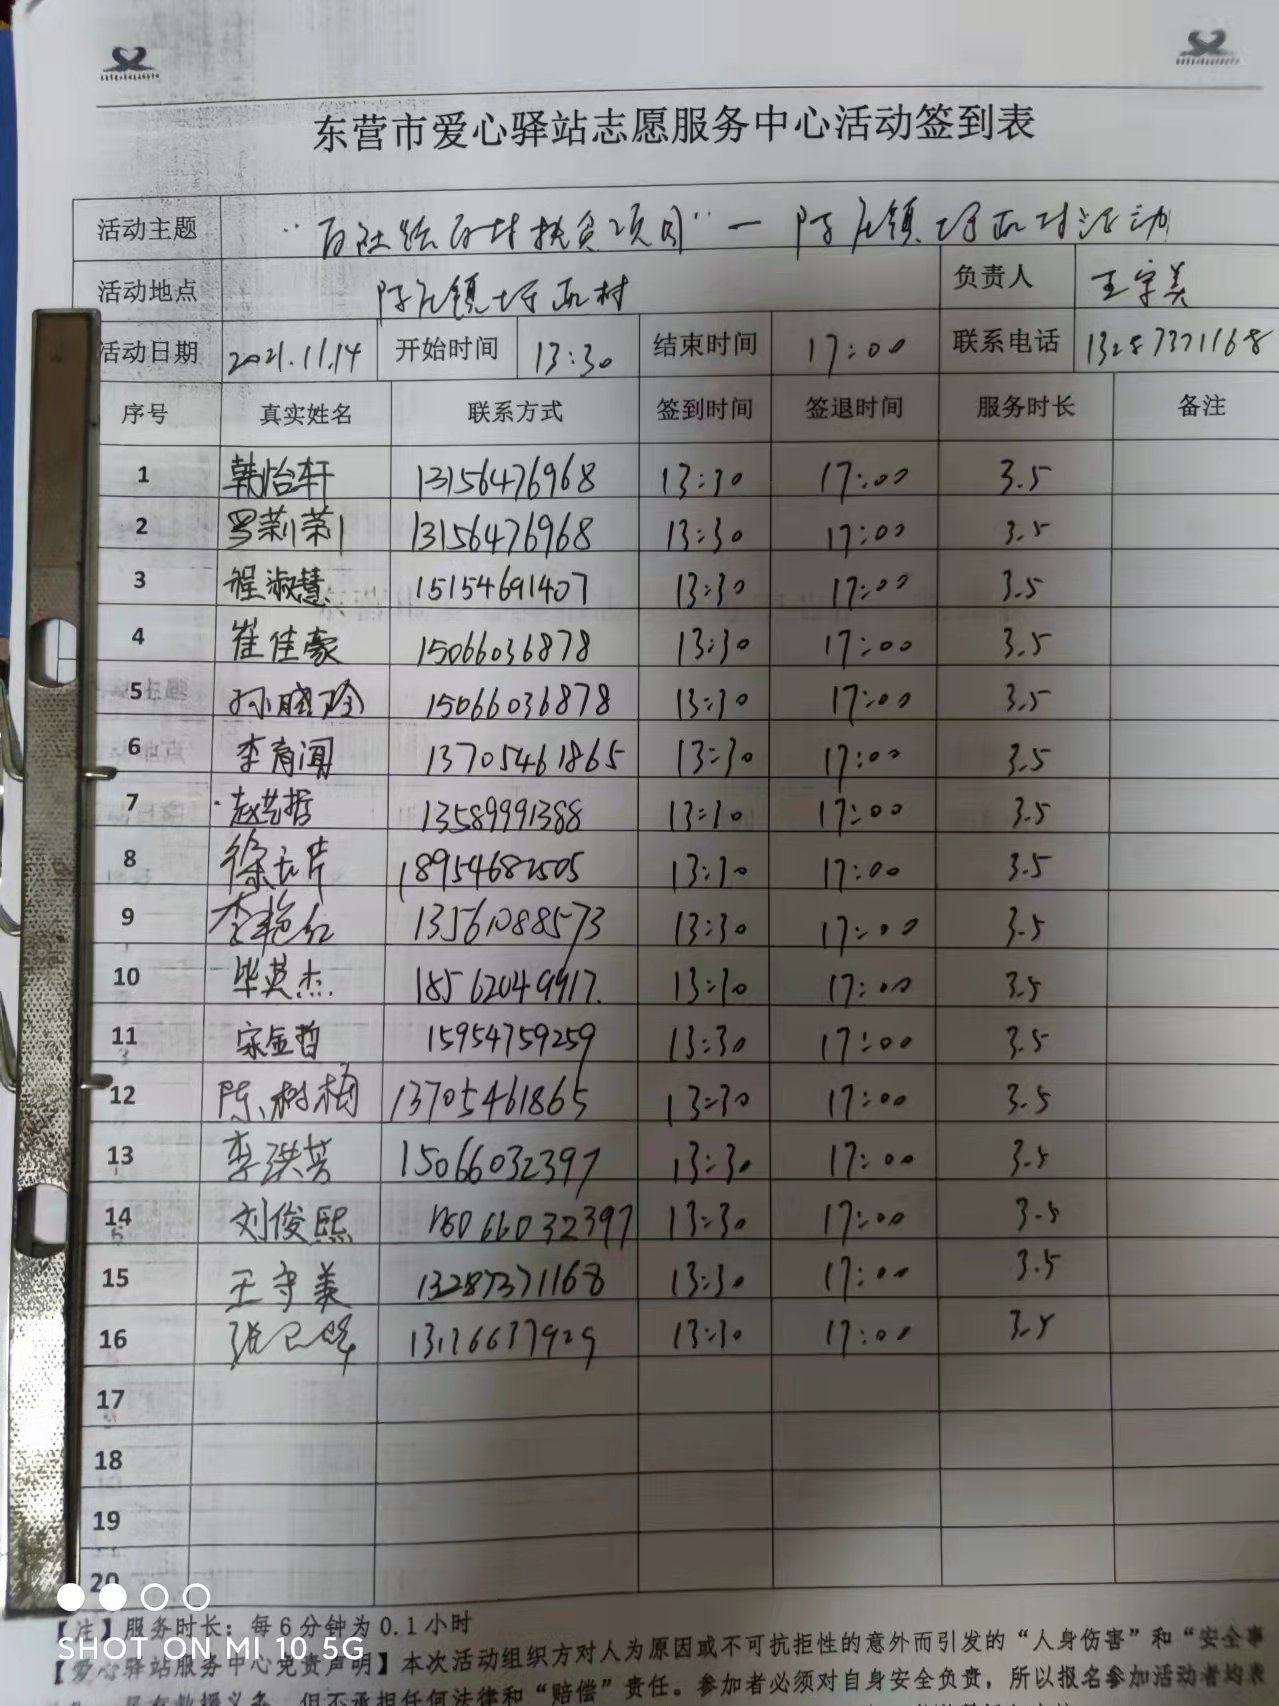 东营市爱心驿站志愿服务中心活动签到表
活动主题 “百社结百村扶贫项目”一 陈庄镇 村活动
活动地点 陈庄镇 村 负责人 王守美
活动日期 2021.11.14 开始时间 13:30 结束时间 17:00 联系电话 13287371168
序号 真实姓名 联系方式 签到时间 签退时间 服务时长 备注
1 韩怡轩 13156476968 13:30 17:00 3.5
2 罗莉莉 13156476968 13:30 17:00 3.5
3 程淑慧 15154691407 13:30 17:00 3.5
4 崔佳豪 15066036878 13:30 17:00 3.5
5 孙晓玲 15066036878 13:30 17:00 3.5
6 李育润 13705461865 13:30 17:00 3.5
7 赵艺哲 13589991388 13:30 17:00 3.5
8 徐 18954682505 13:30 17:00 3.5
9 李艳红 13561088573 13:30 17:00 3.5
10 毕英杰 18562049917. 13:30 17:00 3.5
11 宋金哲 15954759259 13:30 17:00 3.5
12 陈树梅 13705461865 13:30 17:00 3.5
13 李洪芳 15066032397 13:30 17:00 3.5
14 刘俊熙 15066032397 13:30 17:00 3.5
15 王守美 13287371168 13:30 17:00 3.5
16 张 13176637929 13:30 17:00 3.5
17
18
19
20
【注】服务时长：每6分钟为0.1小时
【爱心驿站服务中心免责声明】本次活动组织方对人为原因或不可抗拒性的意外而引发的“人身伤害”和“安全事
只有救援义务，但不承担任何法律和“赔偿”责任。参加者必须对自身安全负责，所以报名参加活动者均表
SHOT ON MI 10 5G